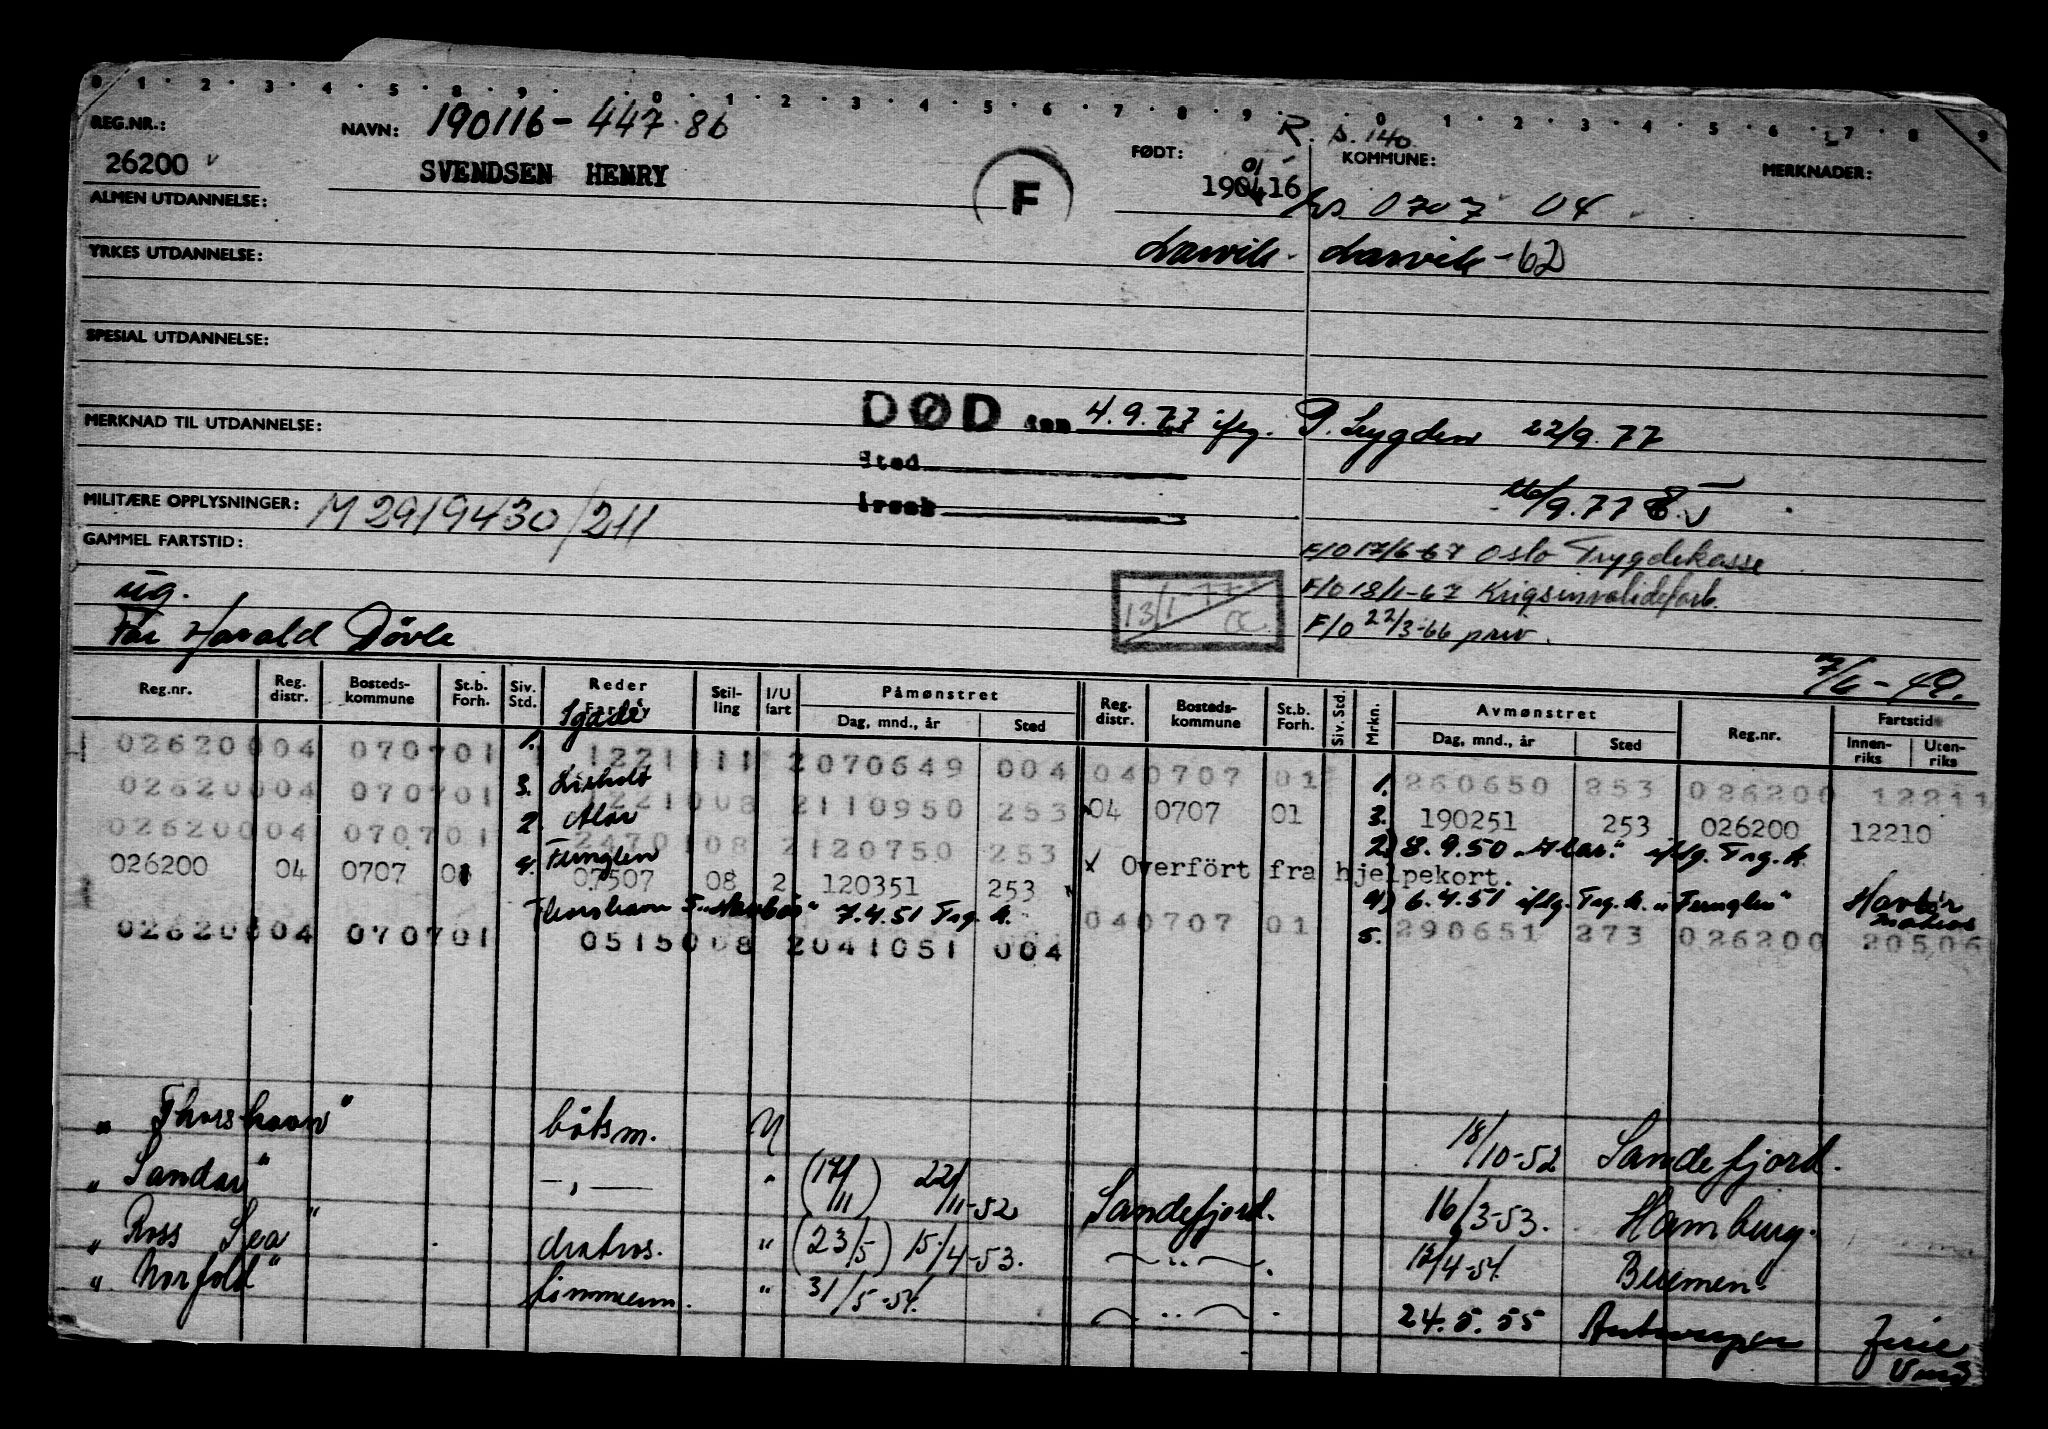 0 1 2 3 4 5 8 9 0 1 2 3 4 5 6 7 8 9 0 1 2 3 4 5 6 7 8 9
REG.NR.: NAVN: 190116 - 447 86 FØDT: R. s. 140 KOMMUNE: MERKNADER:
26200 SVENDSEN HENRY F 190416 01 0707 04
ALMEN UTDANNELSE:
YRKES UTDANNELSE: Larvik - Larvik - 62
SPESIAL UTDANNELSE:
MERKNAD TIL UTDANNELSE: DØD den 4.9.77 iflg. 22/9.77
Sted
Årsak
/9.77
MILITÆRE OPPLYSNINGER: M 2919430/211
GAMMEL FARTSTID: F/O 17/6-67 Oslo Trygdekasse
ug. 13/1-77 F/O 18/1-67 Krigsinvalideforb.
Far Harald Dövle F/O 22/3-66 priv.
7/6-49.
Reg.nr. Reg. distr. Bosteds-kommune St.b. Forh. Siv. Std. Reder Fartøy Stil-ling I/U fart Påmønstret Dag, mnd., år Sted Reg. distr. Bosteds-kommune St.b. Forh. Siv. Std. Mrkn. Avmønstret Dag, mnd., år Sted Reg.nr. Fartstid Innen-riks Uten-riks
026200 04 0707 01 1. 12211 11 2 070649 004 040707 01 1. 260650 253 026200 12211
026200 04 0707 01 3. 12210 08 2 110950 253 04 0707 01 3. 190251 253 026200 12210
026200 04 0707 01 2. Alar 24701 08 2 120750 253 2) 8.9.50 "Alar" iflg. Trg. A.
026200 04 0707 01 4. Fernglen 07507 08 2 120351 253 Overført fra hjelpekort.
Thorshavn 5. "Havbör" 7.4.51 Trg. A. 4) 6.4.51 iflg. Trg. A. "Fernglen" Havbör
026200 04 0707 01 05150 08 2 041051 004 040707 01 5. 290651 273 026200 20506
"Thorshavn" båtsm. U 18/10-52 Sandefjord.
"Sandar" -,- " (17/11) 22/11-52 Sandefjord. 16/3-53. Hamburg.
"Ross Sea" matros. " (23/5) 15/4-53. -"-. 12/4-54. Bremen.
"Norfold" tømmerm. " 31/5-54. -"-. 24.5.55 Antwerpen Ferie